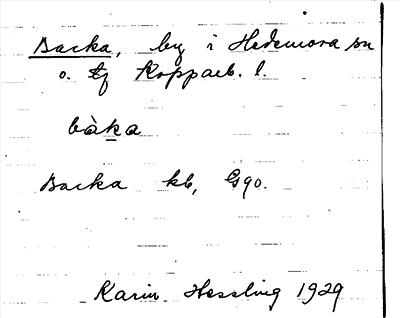 Backa, by i Hedemora sn
o. tg Koppaeb. l.
bàka
Backa kb, G90.
Karin Hessling 1929